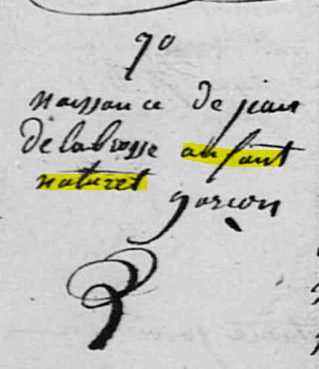 9o
naissance de jean
delabrosse anfant
naturel
garcon